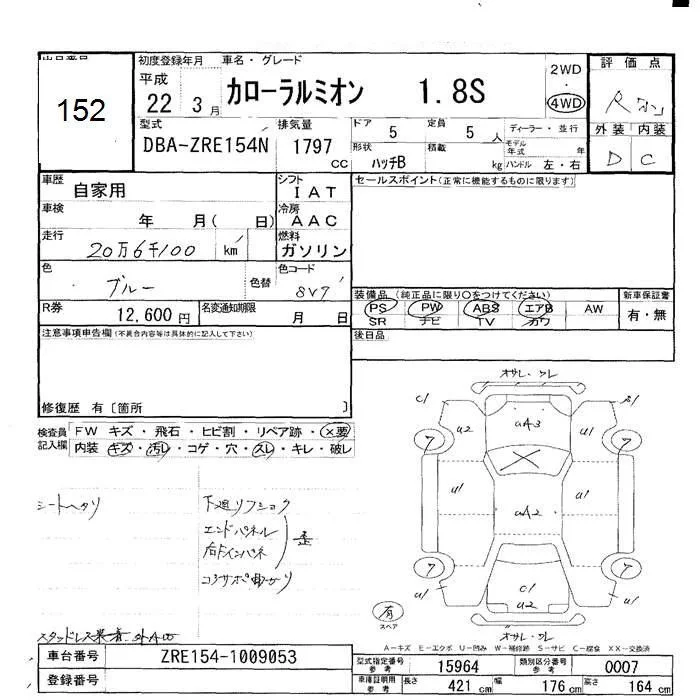 出品番号
152
初度登録年月
平成
22 3月
車名・グレード
カローラルミオン 1.8S
2WD
・
4WD
評価点
R
外装 内装
D C
型式
DBA-ZRE154N
排気量
1797 CC
ドア 5
定員 5 人
形状 ハッチB
積載 kg
ディーラー・並行
モデル年式 年
ハンドル 左・右
車歴 自家用
シフト
I A T
車検 年 月( 日)
冷房
A A C
走行 20万6千100 km
燃料
ガソリン
色 ブルー 色替
色コード
8V7
R券 12,600円
名変通知期限 月 日
セールスポイント(正常に機能するものに限ります)
装備品 (純正品に限り○をつけてください)
PS PW ABS エアB AW
SR ナビ TV カワ
新車保証書
有・無
後日品
注意事項申告欄(不具合内容等は具体的に記入して下さい)
修復歴 有〔箇所 〕
検査員記入欄
FW キズ・飛石・ヒビ割・リペア跡・×要
内装 キズ・汚レ・コゲ・穴・スレ・キレ・破レ
シートヘタリ
エンドパネル
歪
コアサポ曲がり
スタッドレス
オサレ・ワレ
C1
U2
UA3
U1
ア
ア
U1
UA2
U1
ア
ア
U1
C1
U2
U1
オサレ・ワレ
有
スペア
A-キズ E-エクボ U-凹み W-補修跡 S-サビ C-腐食 XX-交換済
車台番号 ZRE154-1009053
登録番号
型式指定番号参考 15964
類別区分番号参考 0007
車庫証明用参考 長さ 421 cm 幅 176 cm 高さ 164 cm